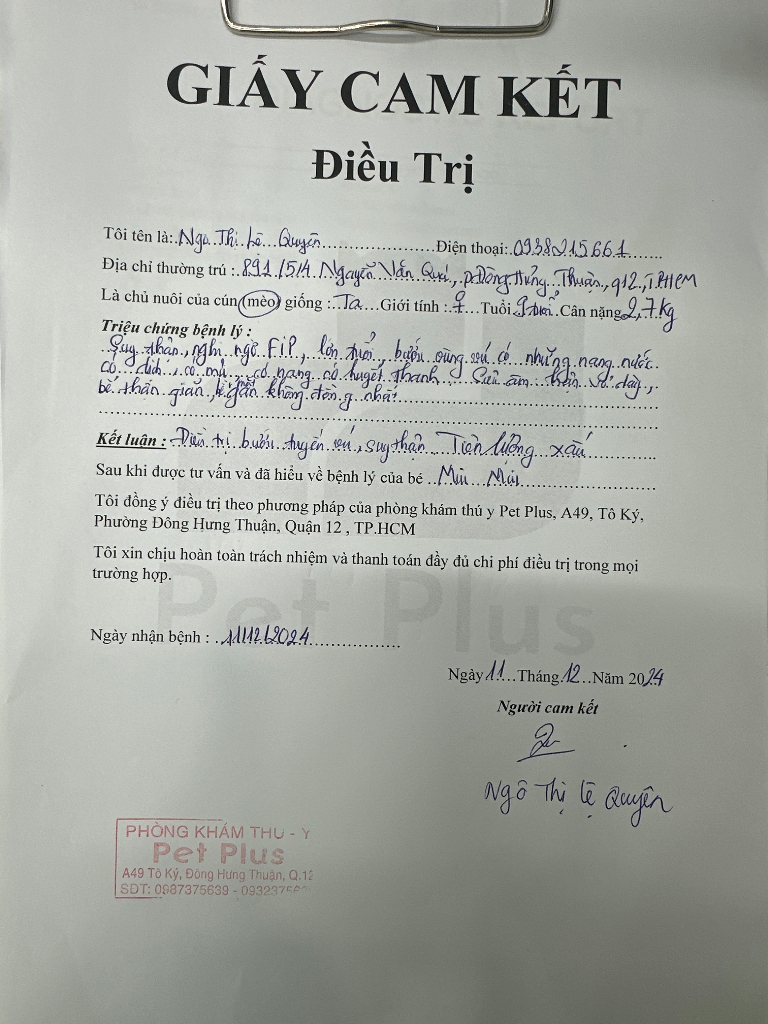 GIẤY CAM KẾT
Điều Trị
Tôi tên là: Ngô Thị Lệ Quyên Điện thoại: 0938215661
Địa chỉ thường trú : 891/51A Nguyễn Văn Quá, p Đông Hưng Thuận, q12, TPHCM
Là chủ nuôi của cún (mèo) giống : Ta Giới tính : ♀ Tuổi 9 tuổi Cân nặng 2,7 kg
Triệu chứng bệnh lý :
Suy thận, nghi ngờ FIP, lớn tuổi, bướu vùng vú có những nang nước
có dịch, có mủ, có nang có huyết thanh. Siêu âm thận vỏ dày,
bể thận giãn, gan không đồng nhất
Kết luận : Điều trị bướu tuyến vú, suy thận Tiên lượng xấu
Sau khi được tư vấn và đã hiểu về bệnh lý của bé Miu
Tôi đồng ý điều trị theo phương pháp của phòng khám thú y Pet Plus, A49, Tô Ký,
Phường Đông Hưng Thuận, Quận 12 , TP.HCM
Tôi xin chịu hoàn toàn trách nhiệm và thanh toán đầy đủ chi phí điều trị trong mọi
trường hợp.
Pet Plus
Ngày nhận bệnh : 11/12/2024
Ngày 11 Tháng 12 Năm 2024
Người cam kết
Ngô Thị Lệ Quyên
PHÒNG KHÁM THÚ - Y
Pet Plus
A49 Tô Ký, Đông Hưng Thuận, Q.12
SĐT: 0987375639 -